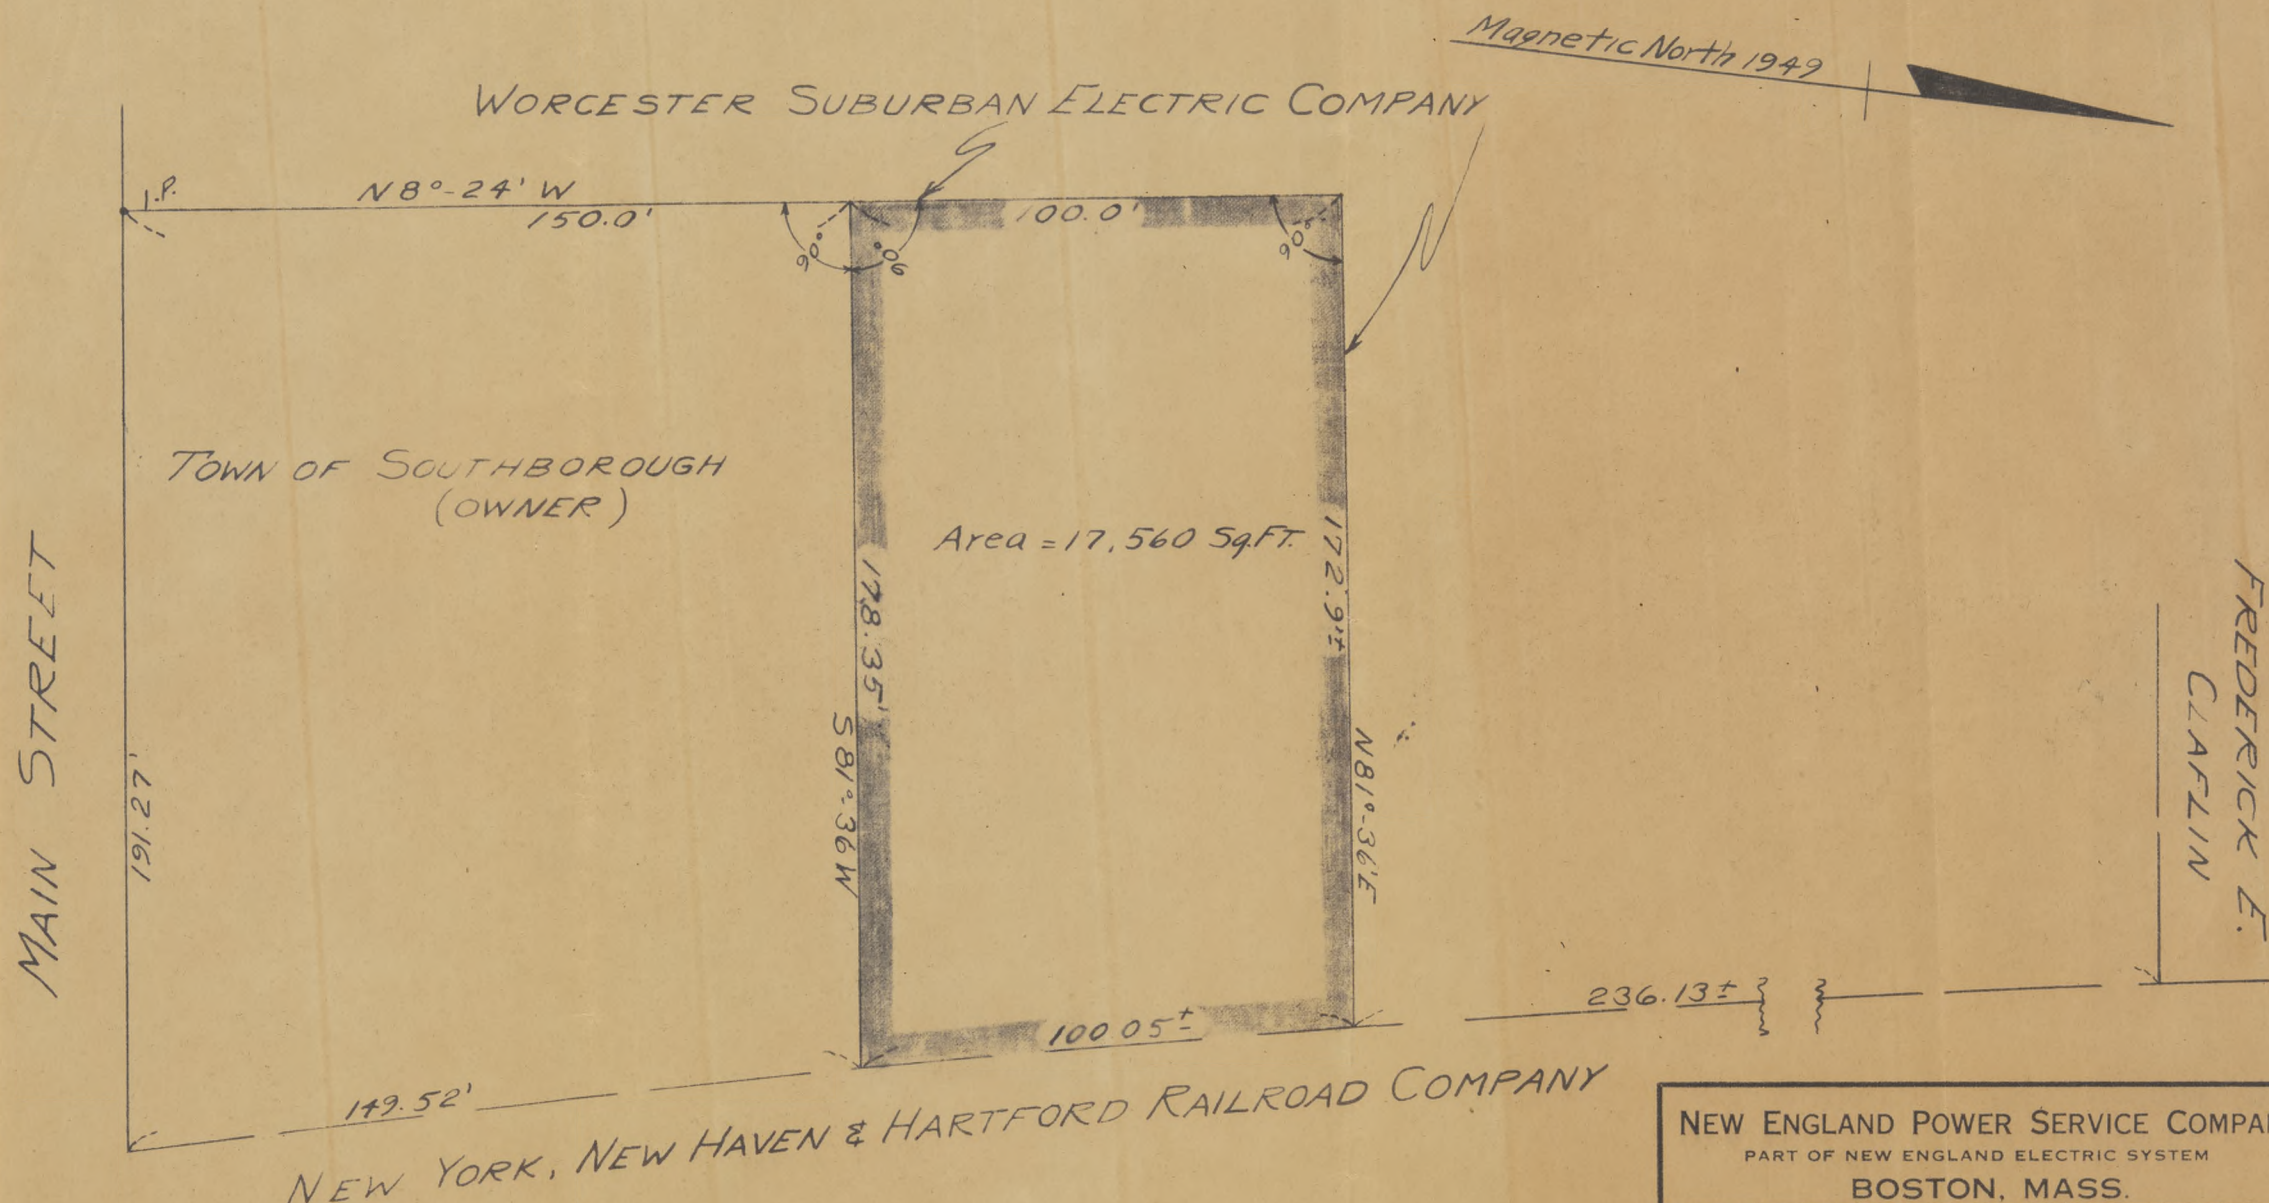 Magnetic North 1949
WORCESTER SUBURBAN ELECTRIC COMPANY
I.P.
N8°-24' W
150.0'
100.0'
90°
90°
90°
TOWN OF SOUTHBOROUGH
(OWNER)
Area = 17,560 Sq.FT.
178.35'
S81°-36'W
172.9'±
N81°-36'E
MAIN STREET
191.27'
FREDERICK E.
CLAFLIN
236.13±
100.05±
149.52'
NEW YORK, NEW HAVEN & HARTFORD RAILROAD COMPANY
NEW ENGLAND POWER SERVICE COMPA
PART OF NEW ENGLAND ELECTRIC SYSTEM
BOSTON, MASS.